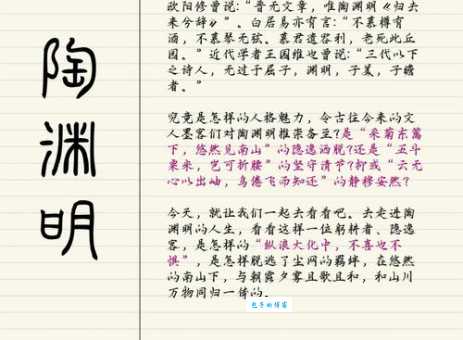 陶渊明
欧阳修曾说:“晋无文章,唯陶渊明《归去
来兮辞》”。白居易亦有言:“不慕樽有
酒,不慕琴无弦。慕君遗容利,老死此丘
园。”近代学者王国维也曾说:“三代以下
之诗人,无过于屈子,渊明,子美,子瞻
者。”
究竟是怎样的人格魅力,令古往今来的文
人墨客们对陶渊明推崇备至?是“采菊东篱
下,悠然见南山”的隐逸洒脱?还是“五斗
粟米,岂可折腰”的坚守清节?抑或“云无
心以出岫,鸟倦飞而知还”的静穆安然?
今天,就让我们一起去看看吧。去走进陶
渊明的人生,看看这样一位躬耕者、隐逸
客,是怎样的“纵浪大化中,不喜也不
惧”,是怎样脱逃了尘网的羁绊,在悠然
的南山下,与朝霞夕雾且歌且和,和山川
万物同归一体的。
包子的博客